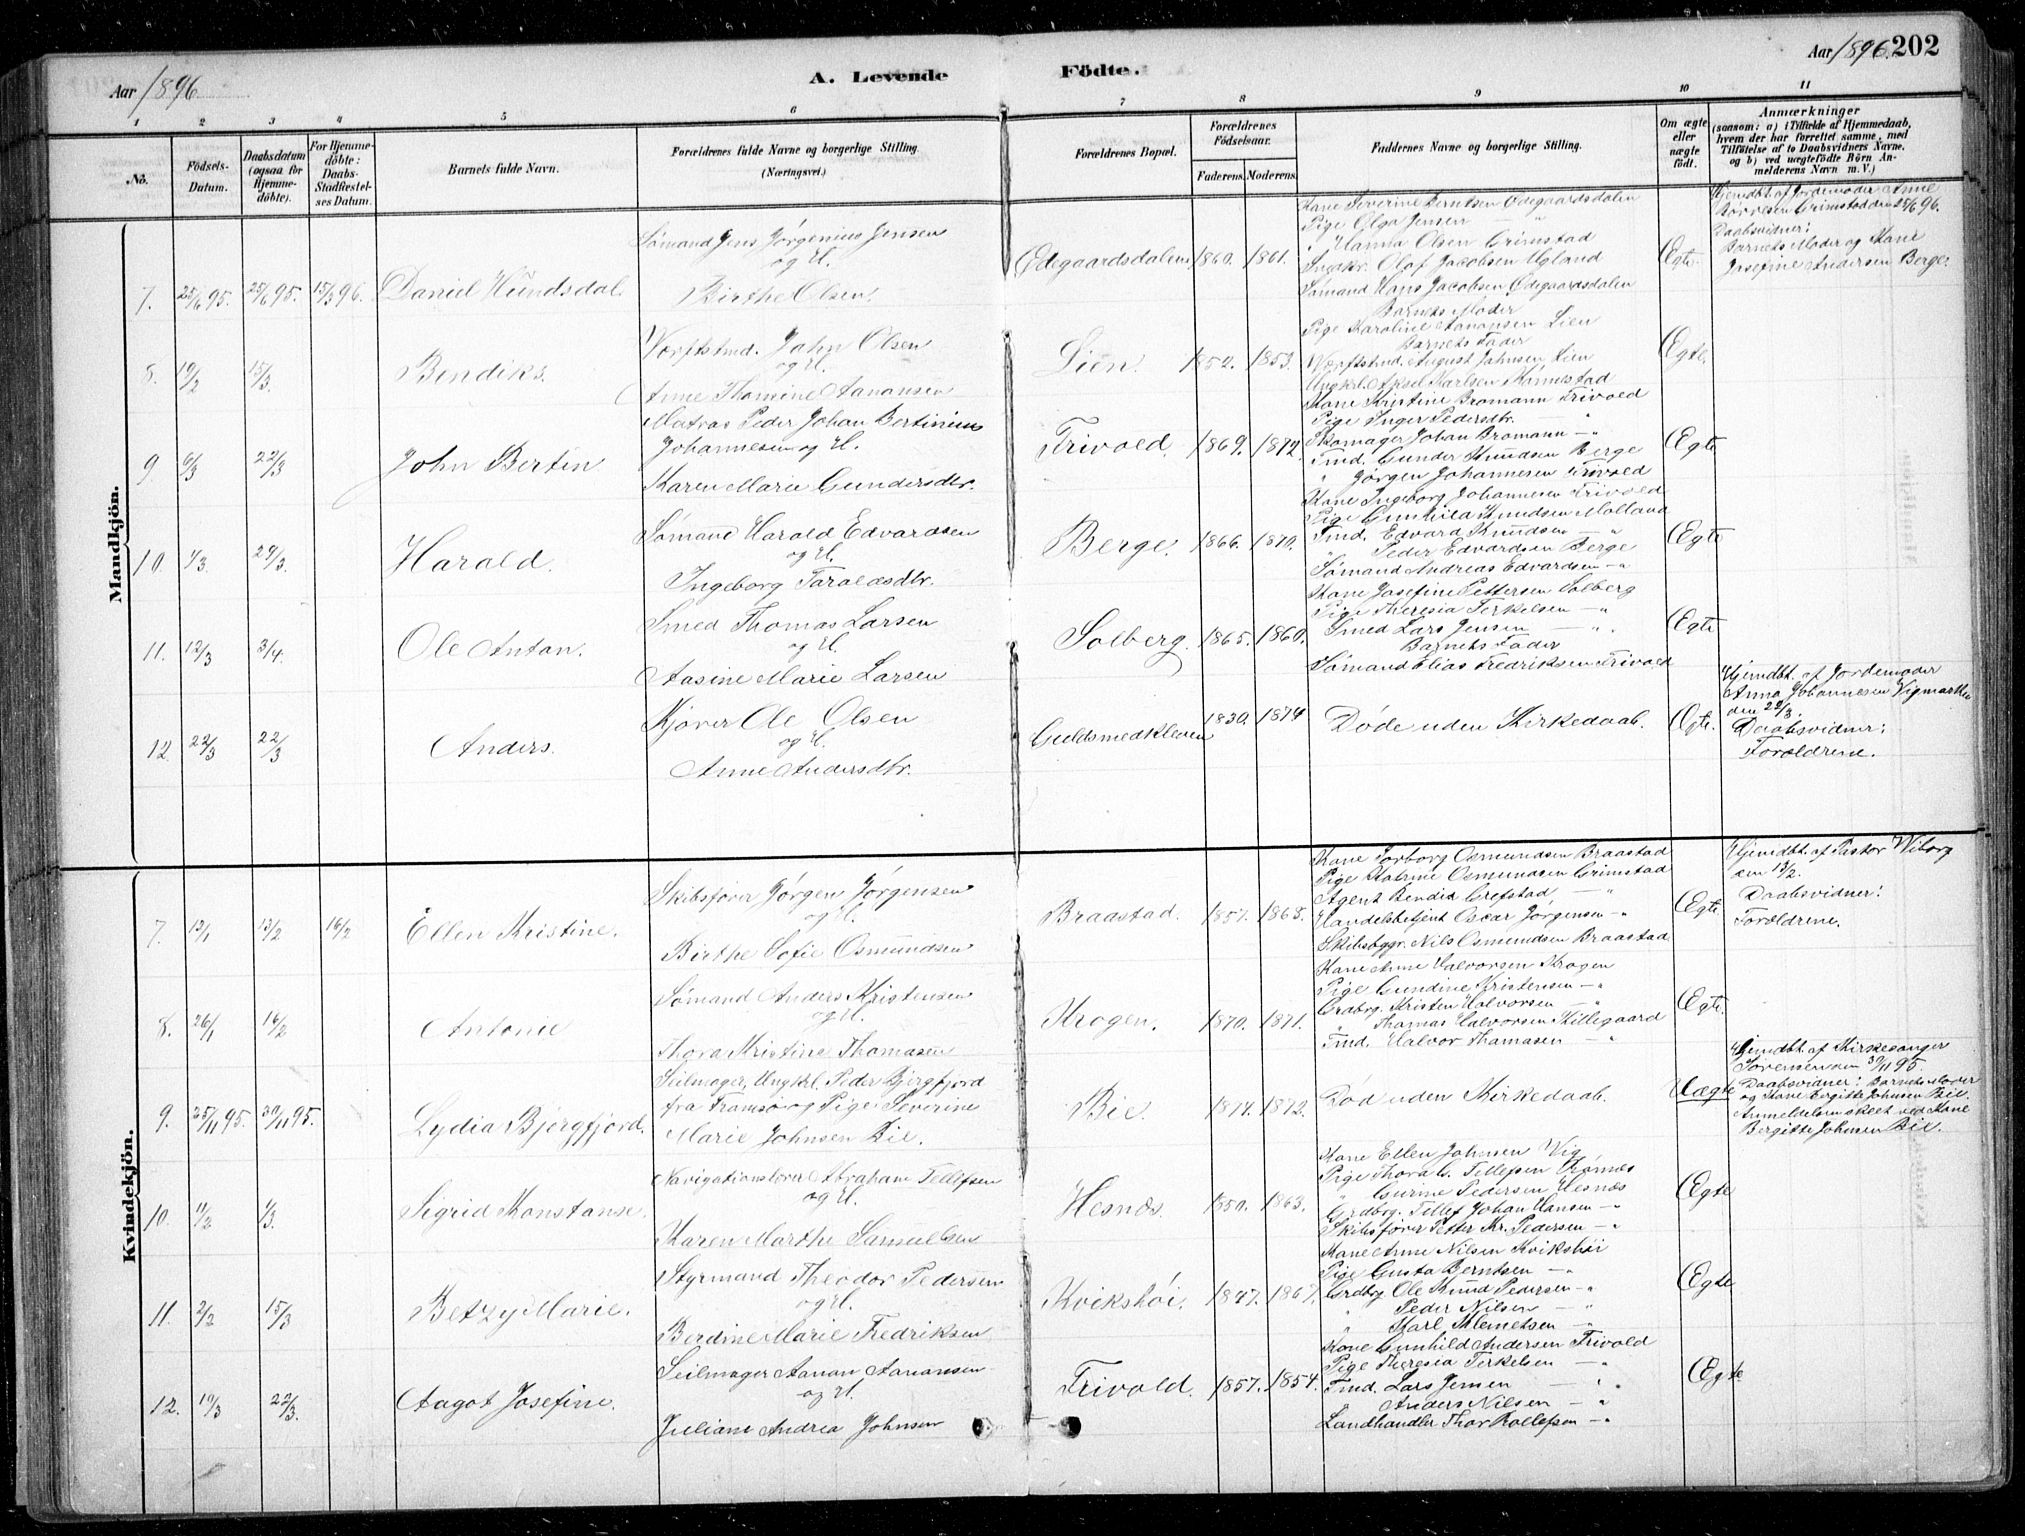 Aar 1896.
A. Levende
Födte.
Aar 1896. 202
1 2 3 4 5 6 7 8 9 10 11
No.
Födsels-Datum.
Daabsdatum (ogsaa for Hjemme-döbte).
For Hjemme-döbte: Daabs-Stadfæstel-ses Datum.
Barnets fulde Navn.
Forældrenes fulde Navne og borgerlige Stilling (Næringsvei.)
Forældrenes Bopæl.
Forældrenes Födselsaar.
Faderens. Moderens.
Faddernes Navne og borgerlige Stilling.
Om ægte eller uægte födt.
Anmærkninger
(saasom: a) i Tilfælde af Hjemmedaab, hvem der har forrettet samme, med Tilföielse af to Daabsvidners Navne, og b) ved uægtefödte Börn Anmelderens Navn m. V.)
Mandkjön.
7. 25/6 95. 25/6 95. 15/3 96. Daniel Hundsdal.
Sømand Jens Jørgenius Jensen
og H.
Birthe Olsen.
Ødegaardsdalen 1860. 1861.
Kone Severine Berntsen Ødegaardsdalen
Pige Olga Jensen — "
" Hanna Olsen Grimstad
Ungkr. Olaf Jacobsen Ugland
Sømand Hans Jacobsen Ødegaardsdalen
Ægte.
Hjemdbt. af Jordemoder Anne
Børresen Grimstad den 25/6 96.
Daabsvidner:
Barnets Moder og Kone
Josefine Andersen Berge.
8. 19/2 15/3. Bendiks.
Værftstmd. John Olsen
og H.
Anne Thomine Aanonsen
Lien. 1852. 1853.
Barnets Moder
Pige Karoline Aanonsen Lien
Barnets Fader
Værftstmd. August Johnsen Lien
Ungkl. Aksel Karlsen
Ægte.
9 6/3 22/3 John Bertin
Matros Peder Johan Bertinius
Johannesen og H.
Karen Marie Gundersdtr.
Trivold. 1869. 1872.
Kone Kristine Bromann Trivold
Pige Inger Pedersdtr. "
Skomager Johan Bromann — "
Tmd. Gunder Knudsen Berge
" Jørgen Johannesen Trivold
Ægte
10. 1/3. 29/3. Harald.
Sømand Harald Edvardsen
og H.
Ingeborg Taraldsdtr.
Berge. 1866. 1870.
Kone Ingeborg Johannesen Trivold
Pige Gunhild Knudsen Molland
Tmd. Edvard Knudsen — "
" Peder Edvardsen Berge
Sømand Andreas Edvardsen — "
Ægte
11. 12/3 3/4. Ole Anton.
Smed Thomas Larsen
og H.
Aasine Marie Larsen
Solberg. 1865. 1860.
Kone Josefine Pettersen Solberg
Pige Theresia Terkelsen — "
Smed Lars Jensen — "
Barnets Fader
Sømand Elias Fredriksen Trivold
Ægte
12. 22/3 22/3 Anders.
Kjører Ole Olsen
og H.
Anne Andersdtr.
Guldsmedkleven 1830. 1874
Døde uden Kirkedaab.
Ægte.
Hjemdbt. af Jordemoder
Anna Johannesen Vigmarken
den 22/3.
Daabsvidner:
Forældrene.
Kvindekjön.
7. 13/1 13/2 16/2 Ellen Kristine.
Skibsfører Jørgen Jørgensen
og H.
Birthe Sofie Osmundsen
Braastad. 1857. 1865.
Kone Torborg Osmundsen Braastad
Pige Katrine Osmundsen Grimstad
Agent Bendix Grefstad, — "
Handelsbetjent Oscar Jørgensen — "
Skibsbygr. Nils Osmundsen Braastad
Ægte.
Hjemdbt. af Pastor Wiborg
den 13/2.
Daabsvidner:
Forældrene.
8. 26/1 16/2 Antonie
Sømand Anders Kristensen
og H.
Thora Kristine Thomasen
Krogen. 1870. 1871.
Kone Anne Halvorsen Krogen
Pige Gundine Kristensen — "
Grdbrg. Kristen Halvorsen — "
" Thomas Halvorsen Killegaard
Tmd. Halvor Thomasen — "
Ægte.
9. 25/11 95. 30/11 95. Lydia Bjergfjord.
Seilmager, Ungkl. Peder Bjergfjord
fra Tromsø og Pige Severine
Marie Johnsen Bie.
Bie. 1874. 1872.
Død uden Kirkedaab.
Uægte
Hjemdbt. af Kirkesanger
Sørensen den 30/11 95.
Daabsvidner: Barnets Moder
og Kone Bergitte Johnsen Bie.
Anmeldelsen skeet ved Kone
Bergitte Johnsen Bie.
10. 11/2 1/3. Sigrid Konstanse.
Navigationslærer Abraham Tellefsen
og H.
Karen Marthe Samuelsen
Hesnæs. 1850. 1863.
Kone Ellen Johnsen Vig
Pige Thora G. Tellefsen
" Gurine Pedersen Hesnæs
Grdbrg. Tellef Johan Hansen — "
Skibsfører Petter Kr. Pedersen — "
Ægte
11. 2/2 15/3 Betzy Marie.
Styrmand Theodor Pedersen
og H.
Berdine Marie Fredriksen
Kvikshøi. 1847. 1867.
Kone Anne Nilsen Kvikshøi
Pige Gusta Berntsen — "
Grdbrg. Ole Knud Pedersen — "
" Peder Nilsen — "
" Karl Klemetsen — "
Ægte
12. 10/3 22/3. Aagot Josefine.
Seilmager Aanon Aanonsen
og H.
Juliane Andrea Johnsen
Trivold. 1857. 1854.
Kone Gunhild Andersen Trivold
Pige Theresia Terkelsen — "
Tmd. Lars Jensen — "
" Anders Nilsen — "
Landhandler Thor Rollefsen — "
Ægte